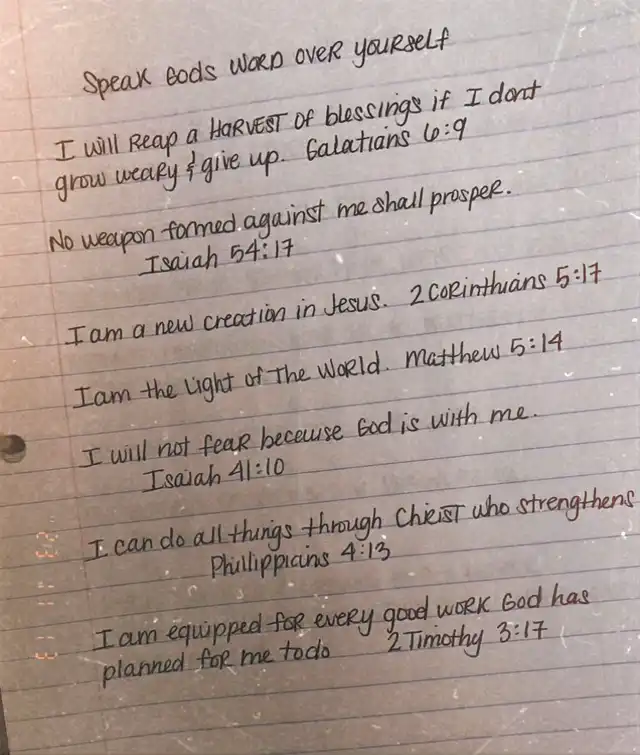 Speak Gods WORD OVER YOURSELF
I will Reap a HARVEST OF blessings if I dont
grow weary & give up. Galatians 6:9
No weapon formed against me shall prosper.
Isaiah 54:17
I am a new creation in Jesus. 2 Corinthians 5:17
I am the Light of The World. Matthew 5:14
I will not fear becewse God is with me.
Isaiah 41:10
I can do all things through CHRIST who strengthens
Phillippians 4:13
I am equipped for every good work God has
planned for me to do 2 Timothy 3:17